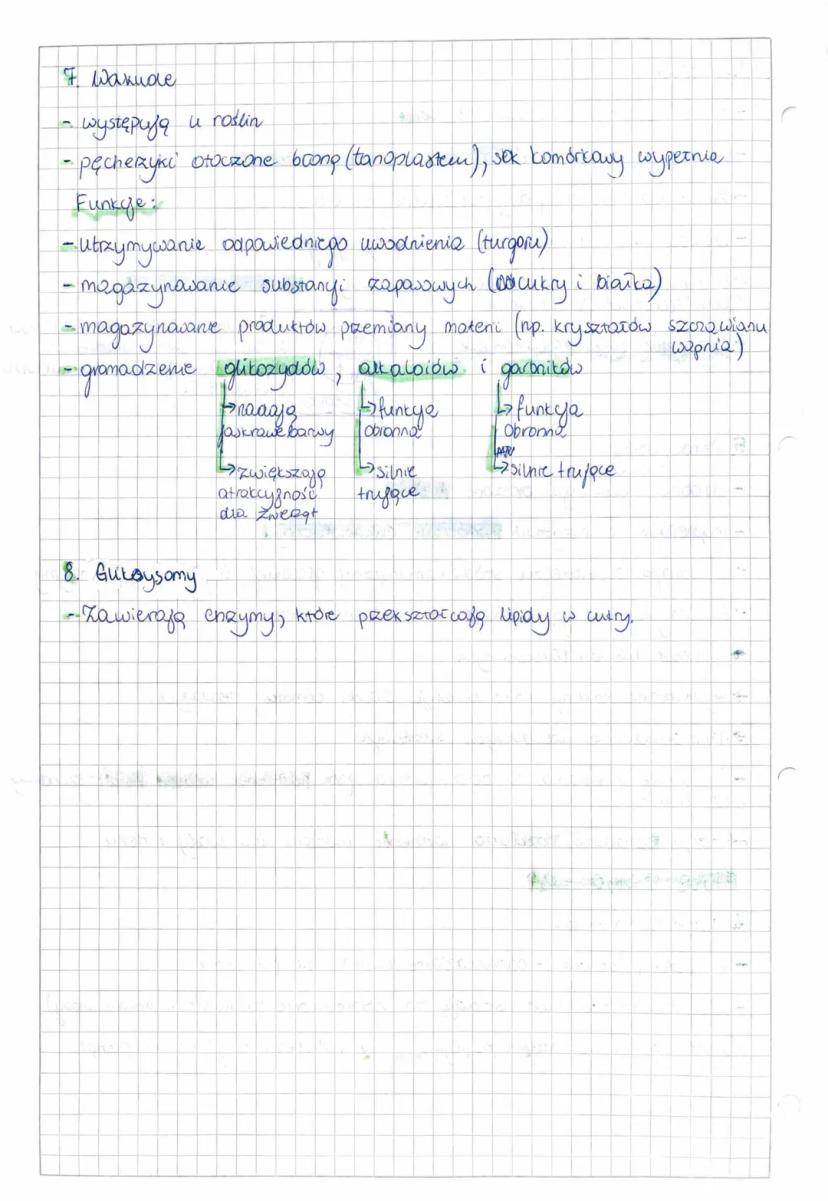 7. Wakuole
- występują u roślin
- pęcherzyki otoczone błoną (tanoplastem), sok komórkowy wypełnia
Funkcje:
- utrzymywanie odpowiedniego uwodnienia (turgoru)
- magazynowanie substancji zapasowych (cukry i białka)
- magazynowanie produktów przemiany materii (np. kryształów szczawianu
wapnia)
- gromadzenie glikozydów, alkaloidów i garbników
↳ nadają ↳ funkcja ↳ funkcja
jaskrawe barwy obronna obronna
↳ zwiększają ↳ silnie ↳ silnie trujące
atrakcyjność trujące
dla zwierząt
8. Glioksysomy
- Zawierają enzymy, które przekształcają lipidy w cukry.